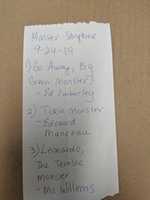 Monster Storytime
9-24-19
1) Go Away, Big
Green Monster
- Ed Emberley
2) Tickle Monster
- Édouard
Manceau
3) Leonardo,
The Terrible
Monster
- Mo Willems